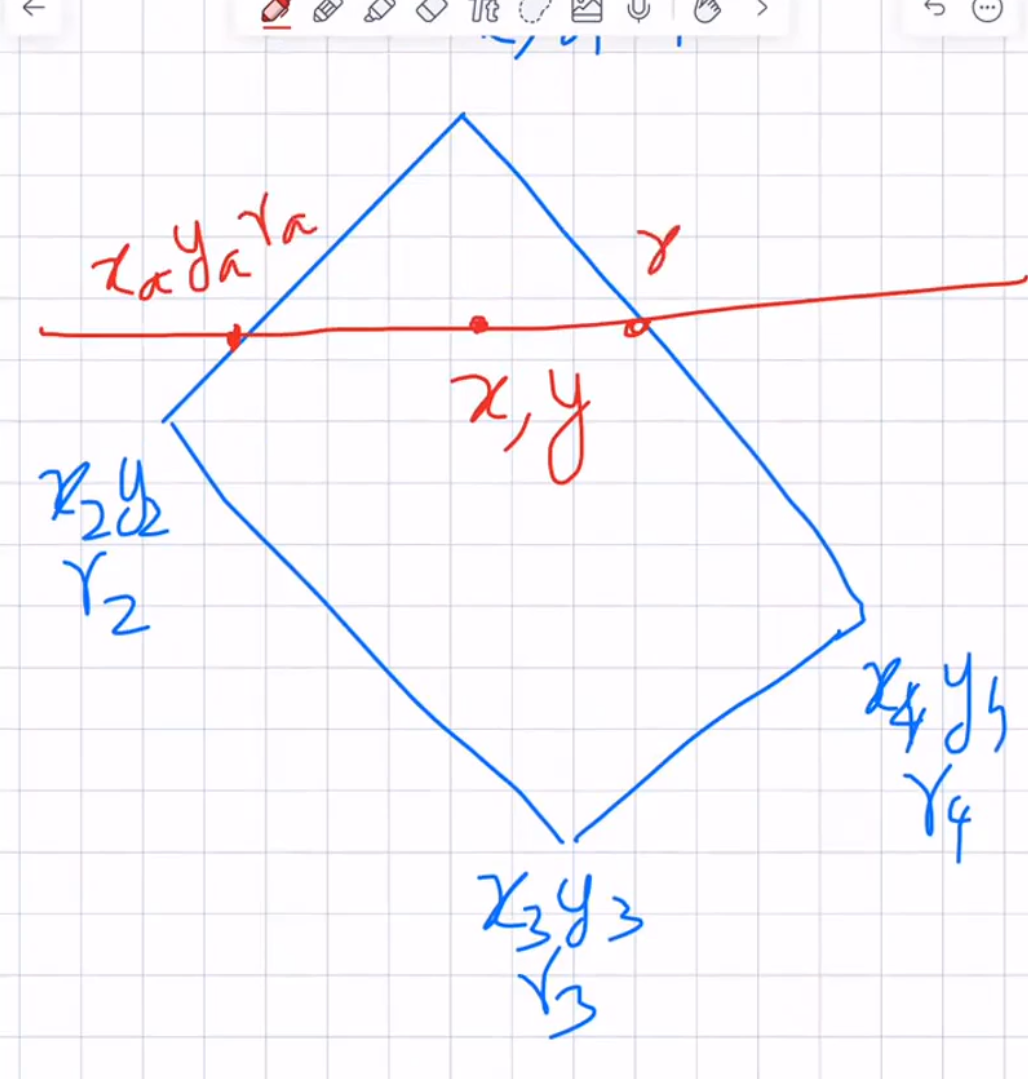 Tt
xₐ yₐ rₐ
r
x, y
x₂ y₂
r₂
x₄ y₄
r₄
x₃ y₃
r₃